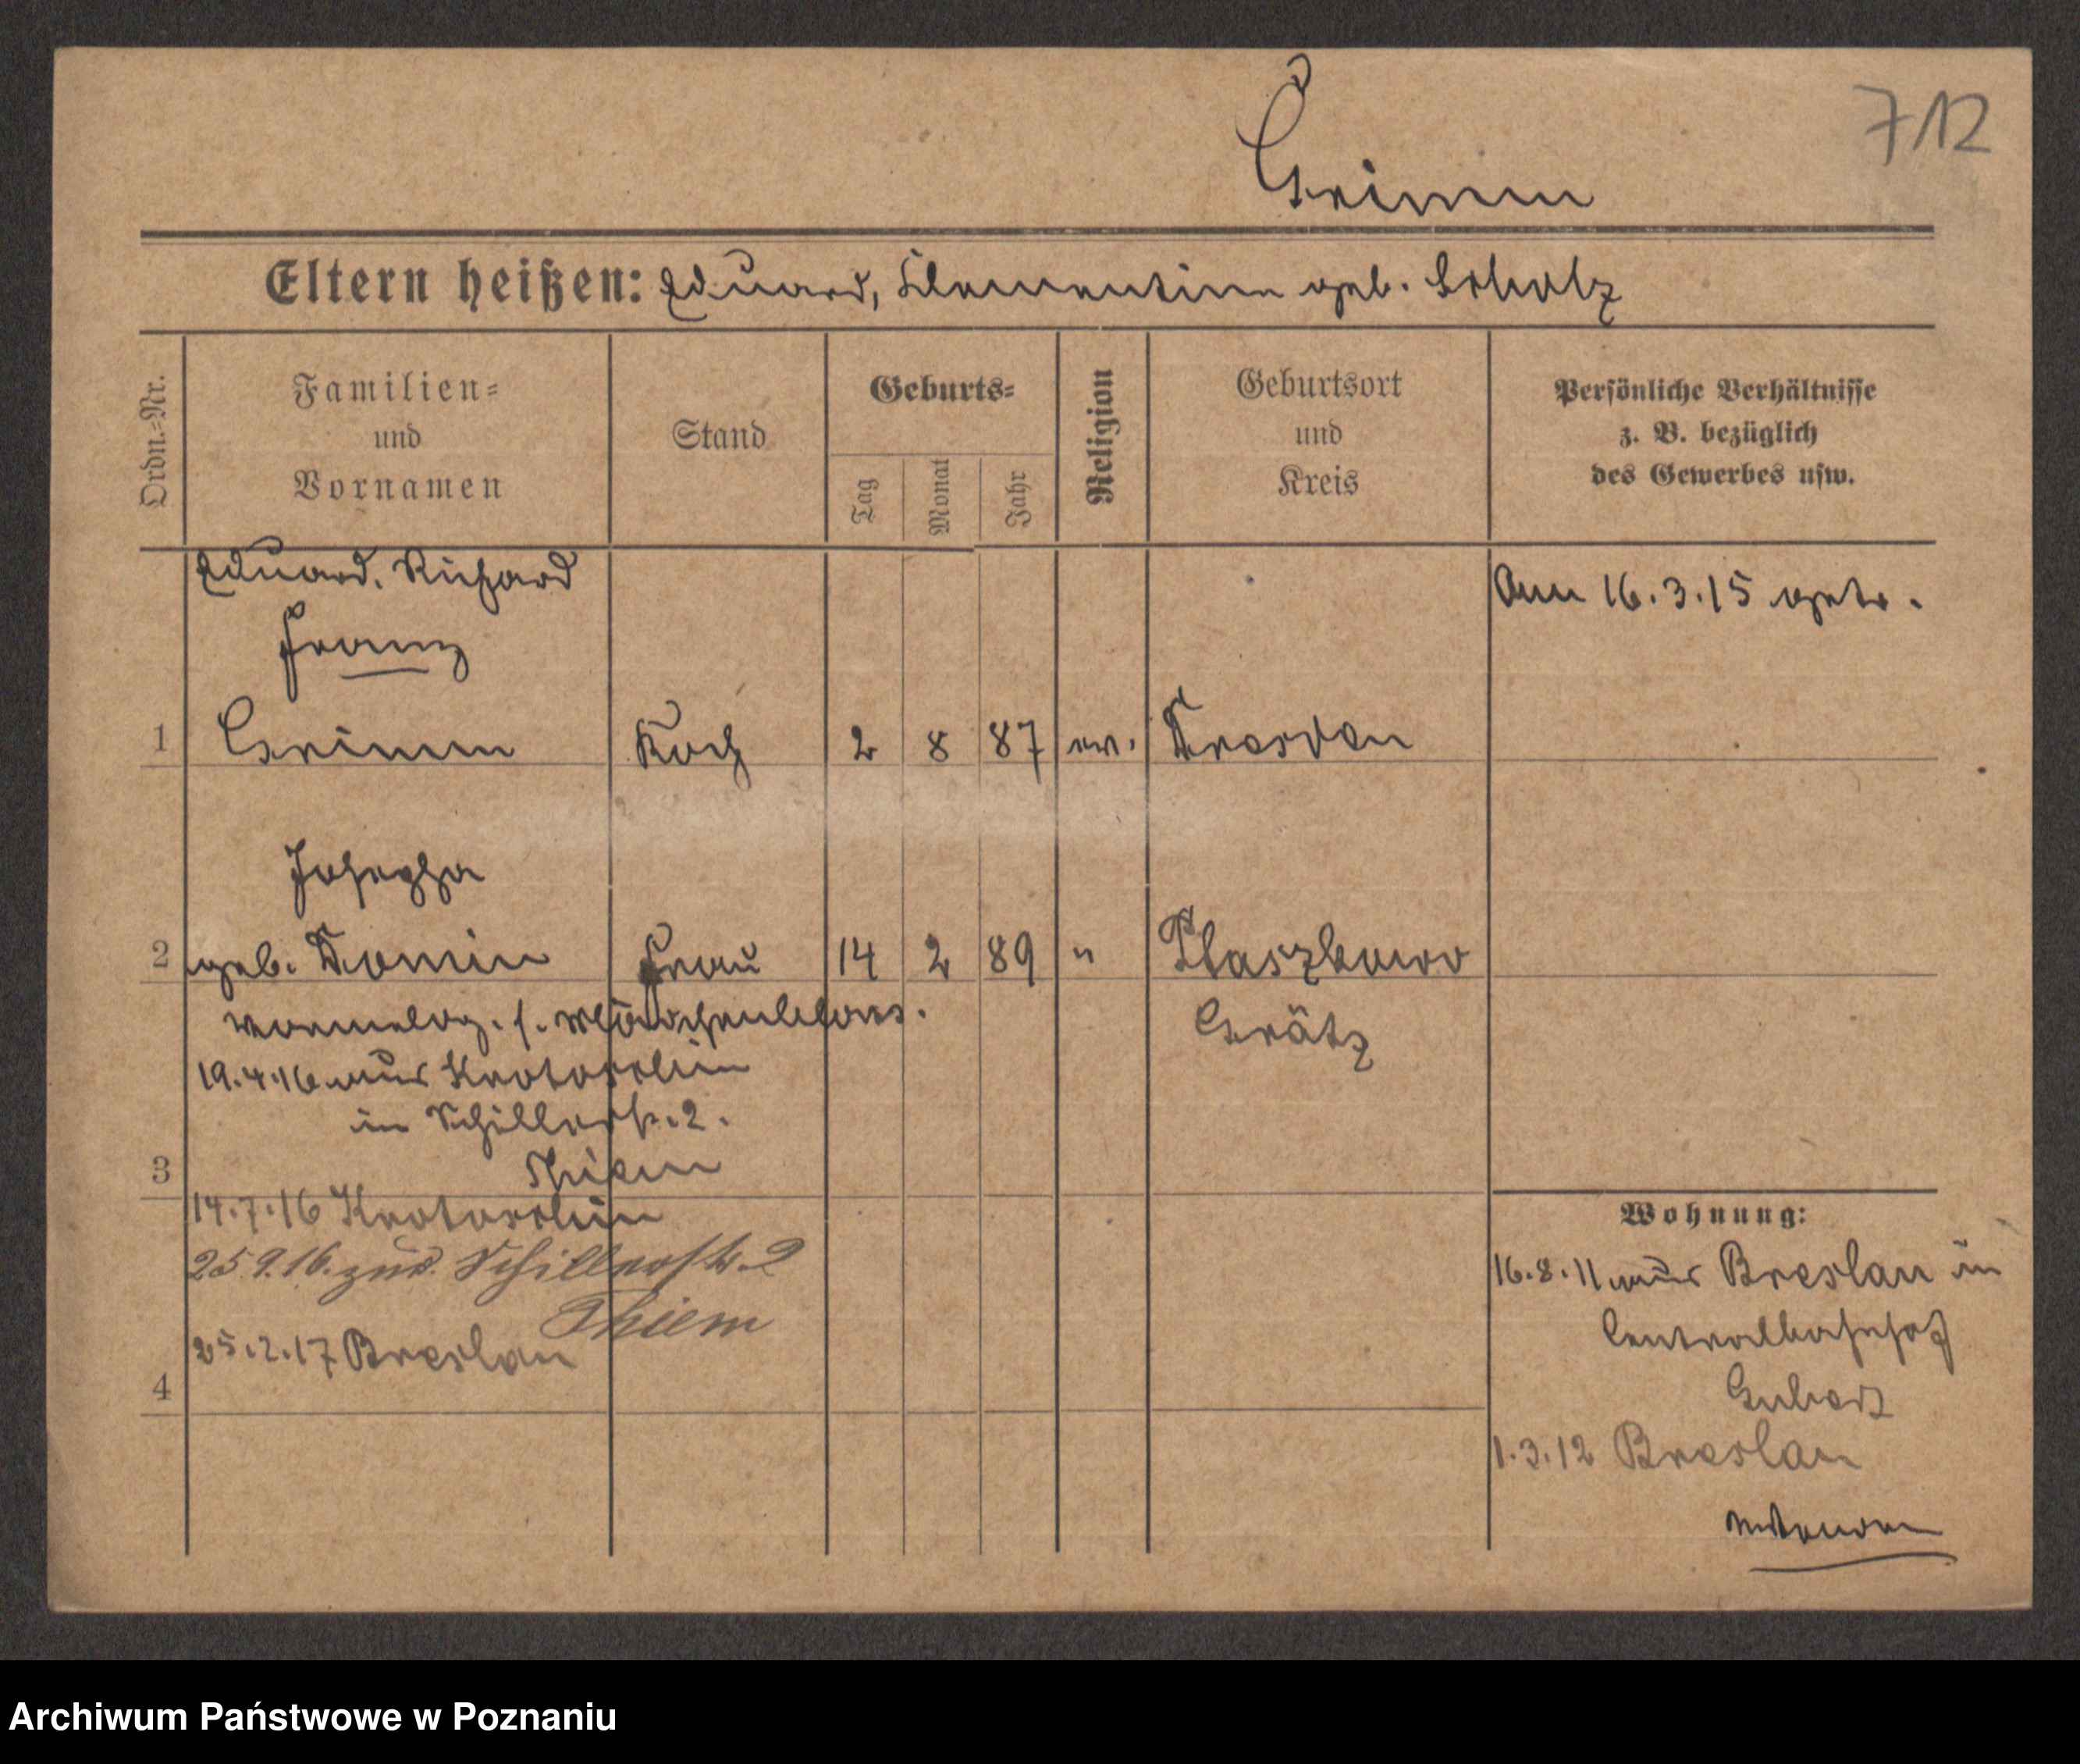 712
Grimm
Eltern heißen: Eduard, Klementine geb. Scholz
Ordn.-Nr.
Familien-
und
Vornamen
Stand
Geburts-
Tag
Monat
Jahr
Religion
Geburtsort
und
Kreis
Persönliche Verhältnisse
z. B. bezüglich
des Gewerbes usw.
Eduard. Richard
Franz
1 Grimm Koch 2 8 87 ev. Dresden
Am 16.3.15 getr.
Josepha
2 geb. Domin Frau 14 2 89 " Ptaszkowo
Grätz
s. Mädchenblatt
19.4.16 aus Krotoschin
in Schillerstr. 2.
3 Thiem
14.7.16 Krotoschin
25 9.16. zur. Schillerstr. 2
Thiem
25.2.17 Breslau
4
Wohnung:
16.8.11 aus Breslau in
Centralbahnhof
1.3.12 Breslau
wenden
Archiwum Państwowe w Poznaniu